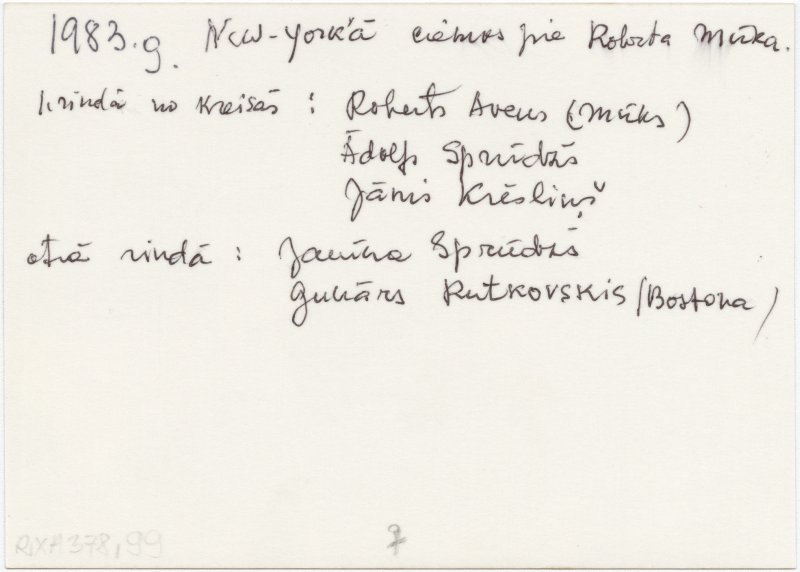 1983.g. New-York'ā ciemos pie Roberta Mūka.
I rindā no kreisās : Roberts Avens (Mūks)
Ādolfs Sprūdžs
Jānis Krēsliņš
otrā rindā : Janīna Sprūdžs
Gunārs Rutkovskis (Bostona)
RXA378,99